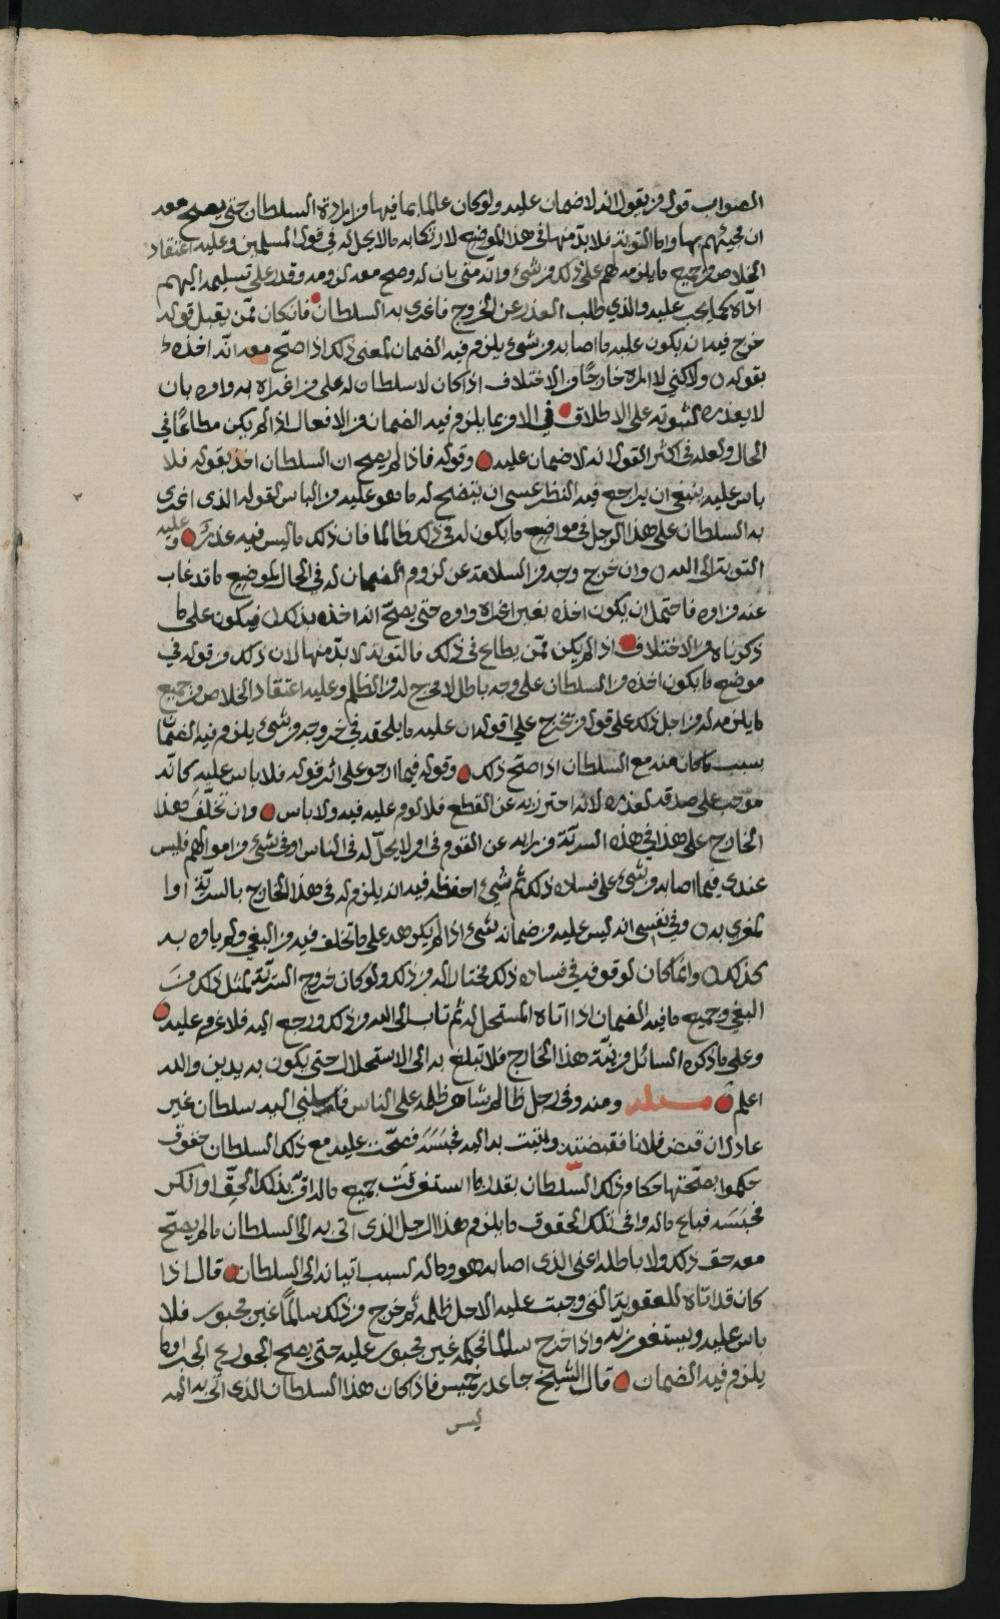 الصواب قول من يقول انه لا ضمان عليه ولو كان عالما بما فيها من ارادة السلطان حتى يصح معه
ان مجيئهم بها واما التوبة فلا بد منها في هذا الموضع لارتكابه ما لا يحل له في قول المسلمين وعليه اعتقاد
الخلاص من جميع ما يلزمه لهم على ذلك من شيء وانه متى بان له وصح معه لزومه وقدر على تسليمه اليهم
اداه كما يجب عليه والذي طلب العذر عن الخروج فاغرى به السلطان فان كان ممن يقبل قوله
خرج فيه ان يكون عليه ما اصابه من شيء يلزم فيه الضمان لمعنى ذلك اذا صح معه انه اخذه
بقوله ولكني لا اراه خارجا من الاختلاف اذا كان لا سلطان له على من اغراه به وامره بان
لا يعذره لثبوته على الاطلاق في الامر بما يلزم فيه الضمان من الافعال اذا لم يكن مطاعا في
الحال ولعله في اكثر القول انه لا ضمان عليه وقوله فاذا لم يصح ان السلطان اخذ بقوله فلا
باس عليه ينبغي ان يراجع فيه النظر عسى ان يتضح له ما هو عليه من الباس لقوله الذي اغرى
به السلطان على هذا الرجل في مواضع ما يكون له في ذلك ظالما فان ذلك ما ليس فيه عذر وعليه
التوبة الى الله وان خرج وجه من السلامة عن لزوم الضمان له في الحال لموضع ما قد غاب
عنه من امره فاحتمل ان يكون اخذه بغير اغراه وامره حتى يصح انه اخذه بذلك فيكون على ما
ذكرناه من الاختلاف اذا لم يكن ممن يطاع في ذلك فالتوبة لا بد منها لان ذلك من قوله في
موضع ما يكون اخذه من السلطان على وجه باطل لا مخرج له من الظلم وعليه اعتقاد الخلاص من جميع
ما يلزمه له من اجل ذلك على قول من يخرج على قوله ان عليه ما يلحقه في خروجه من شيء يلزم فيه الضمان
بسبب ما كان منه مع السلطان اذا صح ذلك وقوله فيما ارجو على اثر قوله فلا باس عليه كانه
موجب على صدقه لعذره لانه احترز به عن القطع فلا لوم عليه فيه ولا باس وان تخلف هذا
الخارج على هذا في هذه السرية من رايه عن القوم في امر لا يحل له في الناس او في شيء من اموالهم فليس
عندي فيما اصابه من شيء على فساده ذلك ثم شيء احفظه فيه انه يلزم له في هذا الخارج بالسرية او ا
لمغري به وفي نفسي انه ليس عليه من ضمانه شيء اذا لم يكرهه على ما تخلف فيه من البغي ولم يامره به
كذلك وانما كان لوقوفه في فساده ذلك مختارا له من ذلك ولو كان خروج السرية لمثل ذلك من
البغي وجميع ما فيه الضمان اذا اتاه المستحل له ثم تاب الى الله من ذلك ورجع اليه فلا غرم عليه
وعلى ما ذكره السائل من نية هذا الخارج فلا تبلغ به الى الاستحلال حتى يكون به يدين والله
اعلم مسئلة ومنه وفي رجل ظالم شاهر ظلمه على الناس فارسلني اليه سلطان غير
عادل ان قبض فلانا فقبضته واتيت به اليه فحبسه فصحت عليه مع ذلك السلطان حقوق
حكموا بصحتها حكام ذلك السلطان بقدر ما استغرقت جميع ماله اقر بذلك الحق او انكر
فحبسه فباع ماله وافى تلك الحقوق ما يلزم هذا الرجل الذي اتى به الى السلطان ما لم يصح
معه حق ذلك ولا باطله اعني الذي اصابه هو وماله لسبب اتيانه الى السلطان قال اذا
كان قد اتاه للعقوبة التي وجبت عليه لاجل ظلمه ثم خرج من ذلك سالما غير مجبور فلا
باس عليه ويستغفر ربه واذا خرج سالما فحكمه غير مجبور عليه حتى يصح الجور مع الجبر او ما
يلزم فيه الضمان قال الشيخ جاعد بن خميس فاذا كان هذا السلطان الذي اتى به اليه
ليس